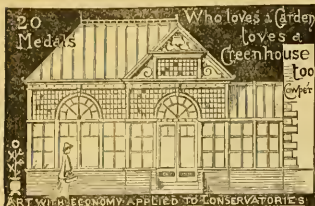 20
Medals
Who loves a Garden
loves a
Greenhouse
too
Cowper
ART WITH ECONOMY APPLIED TO CONSERVATORIES